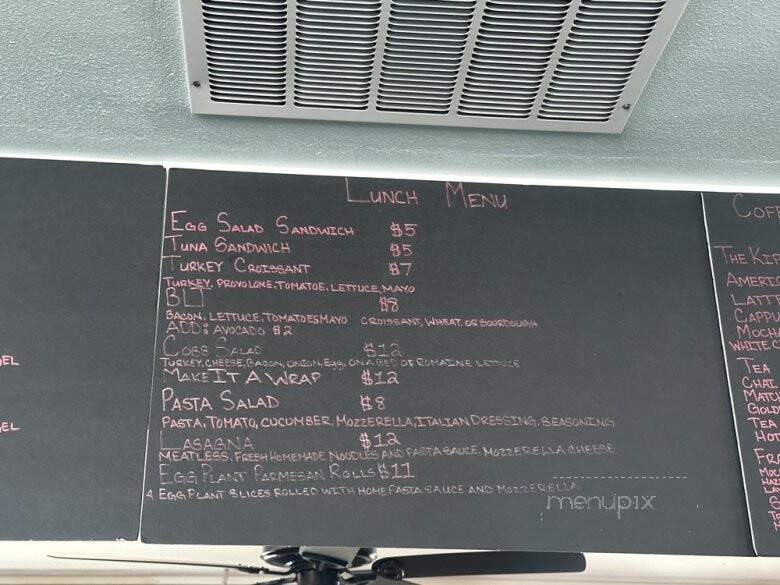 GEL
GEL
LUNCH MENU
EGG SALAD SANDWICH $5
TUNA SANDWICH $5
TURKEY CROISSANT $7
TURKEY, PROVOLONE, TOMATOE, LETTUCE, MAYO
BLT $8
BACON, LETTUCE, TOMATOES MAYO CROISSANT, WHEAT, OR SOURDOUGH
ADD: AVOCADO $2
COBB SALAD $12
TURKEY, CHEESE, BACON, ONION, Egg, ON A BED OF ROMAINE LETTUCE
MAKE IT A WRAP $12
PASTA SALAD $8
PASTA, TOMATO, CUCUMBER, MOZZERELLA, ITALIAN DRESSING, SEASONING
LASAGNA $12
MEATLESS. FRESH HOMEMADE NOODLES AND PASTA SAUCE, MOZZERELLA CHEESE
EGG PLANT PARMESAN ROLLS $11
4 EGG PLANT SLICES ROLLED WITH HOME PASTA SAUCE AND MOZZERELLA
menupix
COF
THE KIP
AMERIC
LATT
CAPPU
MOCHA
WHITE C
TEA
CHAI
MATCH
GOLD
TEA
HOT
FRA